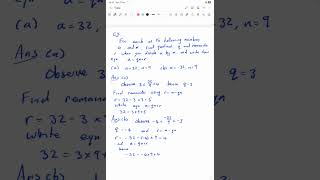 Q8.
For each of the following numbers
a and n, find quotient q and remainder
r when you divide a by n and write down
eqn a = qn+r
(a) a=32, n=9 (b) a=-32, n=9
Ans.(a)
observe 3 ≤ 32/9 < 4 hence q=3
Find remainder using r = a-qn
r = 32-3×9 = 5
write eqn a = qn+r
32 = 3×9+5
Ans(b) observe -4 ≤ -32/9 < -3
q = -4 and r = a-qn
r = -32-(-4)×9 = 4
and a = qn+r
hence
-32 = -4×9+4
Find remainde
r = 32-3×
write eqn
32 = 3×9+
Ans(b)